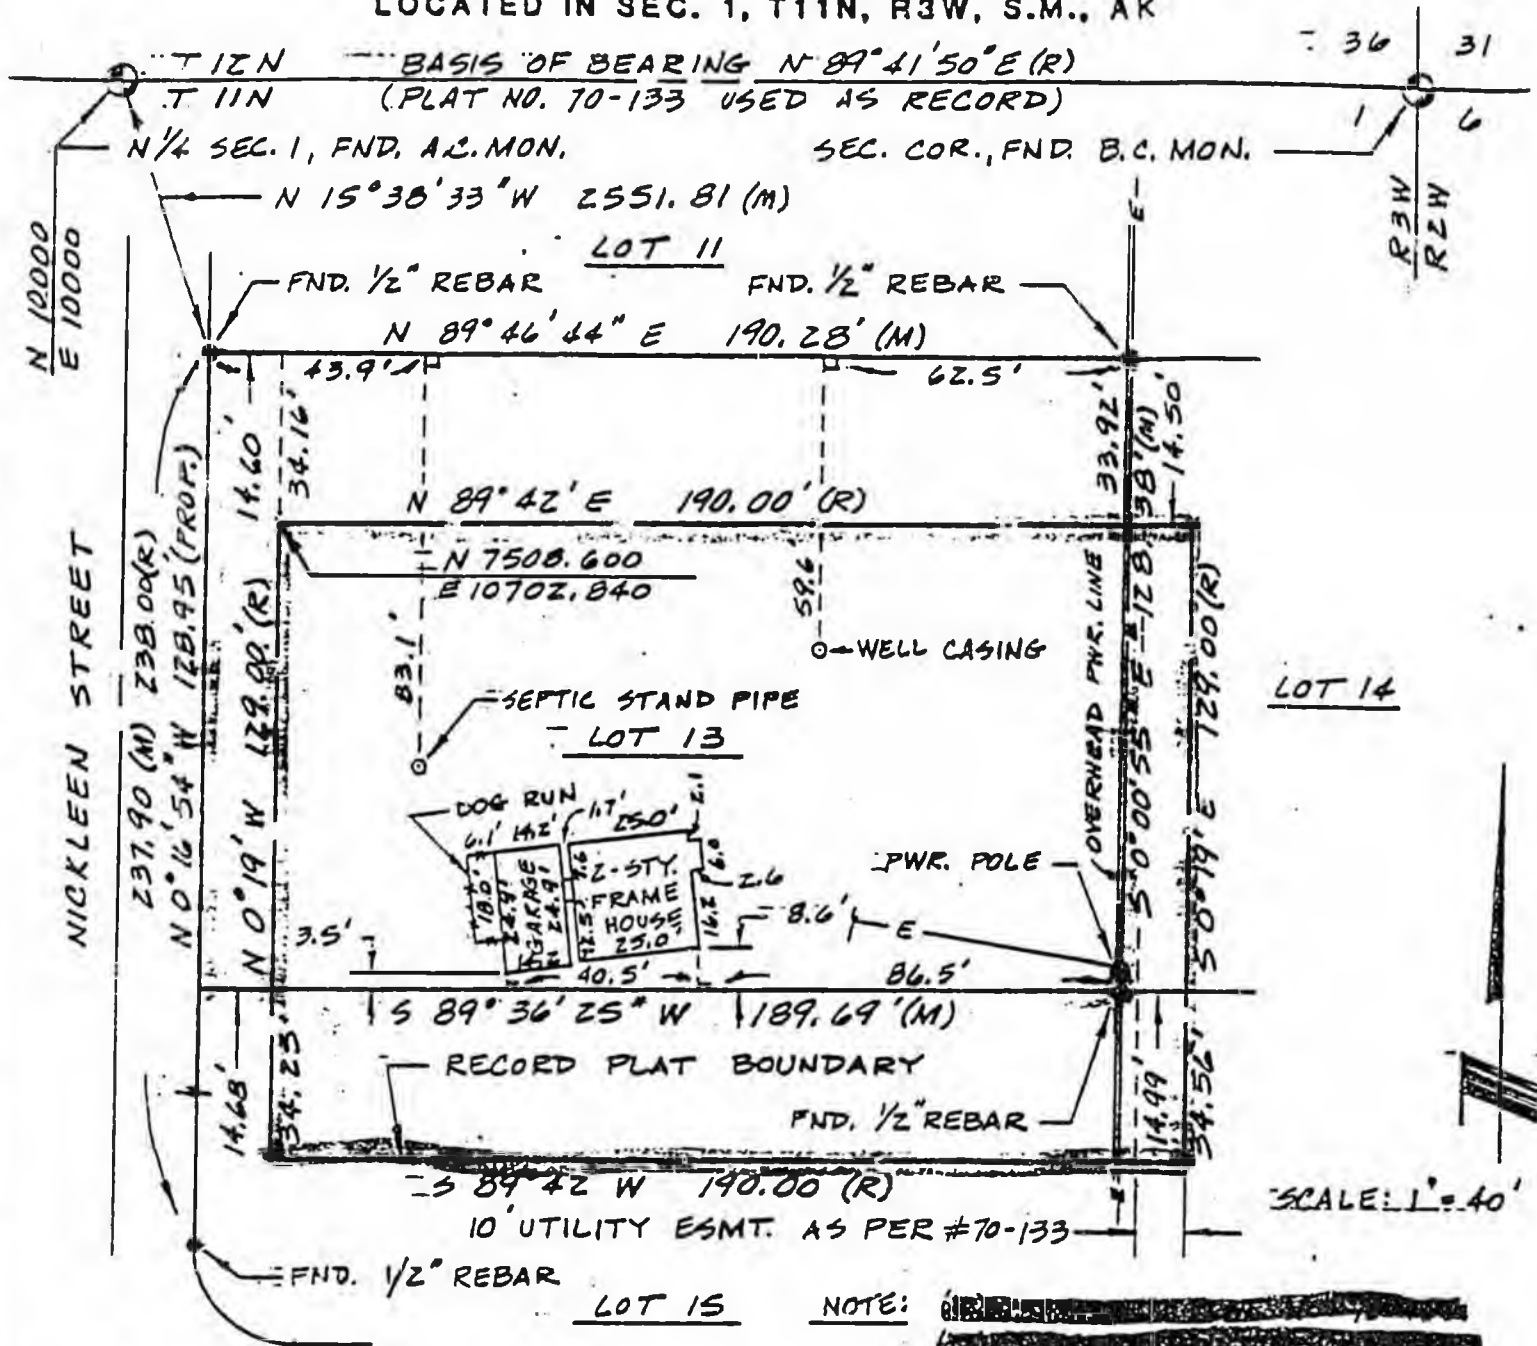 LOCATED IN SEC. 1, T11N, R3W, S.M., AK
T 12 N
BASIS OF BEARING N 89°41'50"E (R)
36 31
T 11N
(PLAT NO. 70-133 USED AS RECORD)
1 6
N 1/4 SEC. 1, FND. A.C. MON.
SEC. COR., FND. B.C. MON.
R3W
R2W
N 15°38'33"W 2551.81 (M)
N 10000
E 10000
LOT 11
E
FND. 1/2" REBAR
FND. 1/2" REBAR
N 89°46'44" E 190.28' (M)
43.9'
62.5'
14.60'
34.16'
33.92'
14.50'
N 89°42' E 190.00' (R)
N 7508.600
E 10702.840
83.1'
59.6
WELL CASING
SEPTIC STAND PIPE
LOT 13
LOT 14
NICKLEEN STREET
237.90 (M) 238.00(R)
N 0°16'54" W 128.95 (PROP.)
N 0°19' W 129.00' (R)
OVERHEAD PWR. LINE
S 0°00'55" E 128.38' (M)
S 0°19' E 129.00' (R)
DOG RUN
6.1' 14.2' 1.7' 25.0'
2.1
18.0'
24.9'
GARAGE
24.9'
7.6
12.5
2-STY.
FRAME
HOUSE
25.0'
6.0
2.6
16.2
8.6'
E
PWR. POLE
3.5'
40.5'
86.5'
S 89°36'25" W 189.69' (M)
RECORD PLAT BOUNDARY
14.68'
34.23'
FND. 1/2" REBAR
14.99'
34.56'
S 89°42 W 190.00 (R)
SCALE: 1"=40'
10' UTILITY ESMT. AS PER #70-133
FND. 1/2" REBAR
LOT 15
NOTE: